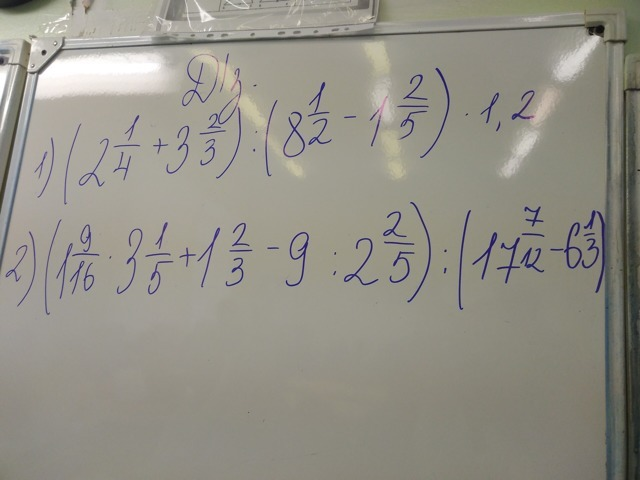 Д/з.
1) (2 1/4 + 3 2/3) : (8 1/2 - 1 2/5) · 1,2
2) (1 9/16 · 3 1/5 + 1 2/3 - 9 : 2 2/5) : (17 7/12 - 6 1/3)